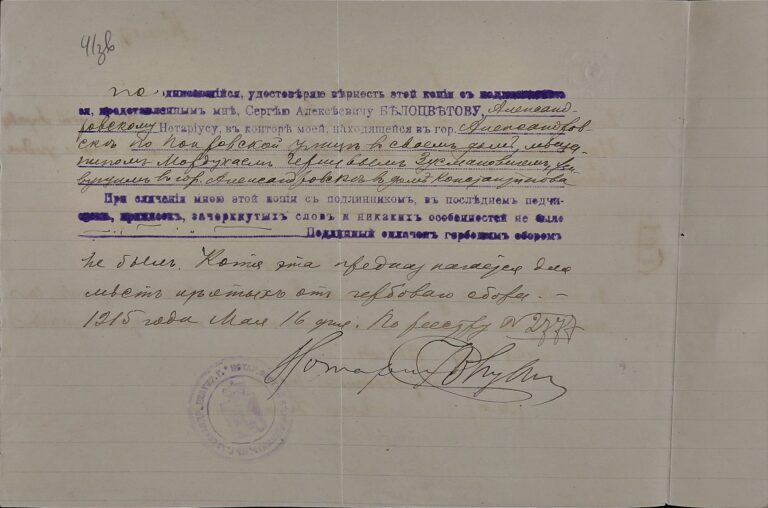 по длинностійся, удостовѣряю вѣрность этой копіи съ подлинникомъ
ея, представленнымъ мнѣ, Сергѣю Алексѣевичу БѢЛОЦВѢТОВУ, Александ-
ровскому Нотаріусу, въ конторѣ моей, находящейся въ гор. Александров-
скѣ по Покровской улицѣ въ своемъ домѣ, мѣща-
ниномъ Мордухаемъ Зусмановичемъ,
въ гор. Александровскѣ въ домѣ Константинова
При сличеніи мною этой копіи съ подлинникомъ, въ послѣднемъ подчи-
стокъ, приписокъ, зачеркнутыхъ словъ и никакихъ особенностей не было
Подлинный оплаченъ гербовымъ сборомъ
не былъ. Копія эта предназначается для
мѣстъ изъятыхъ отъ гербоваго сбора. —
1915 года Мая 16 дня. По реестру № 2777
Нотаріусъ